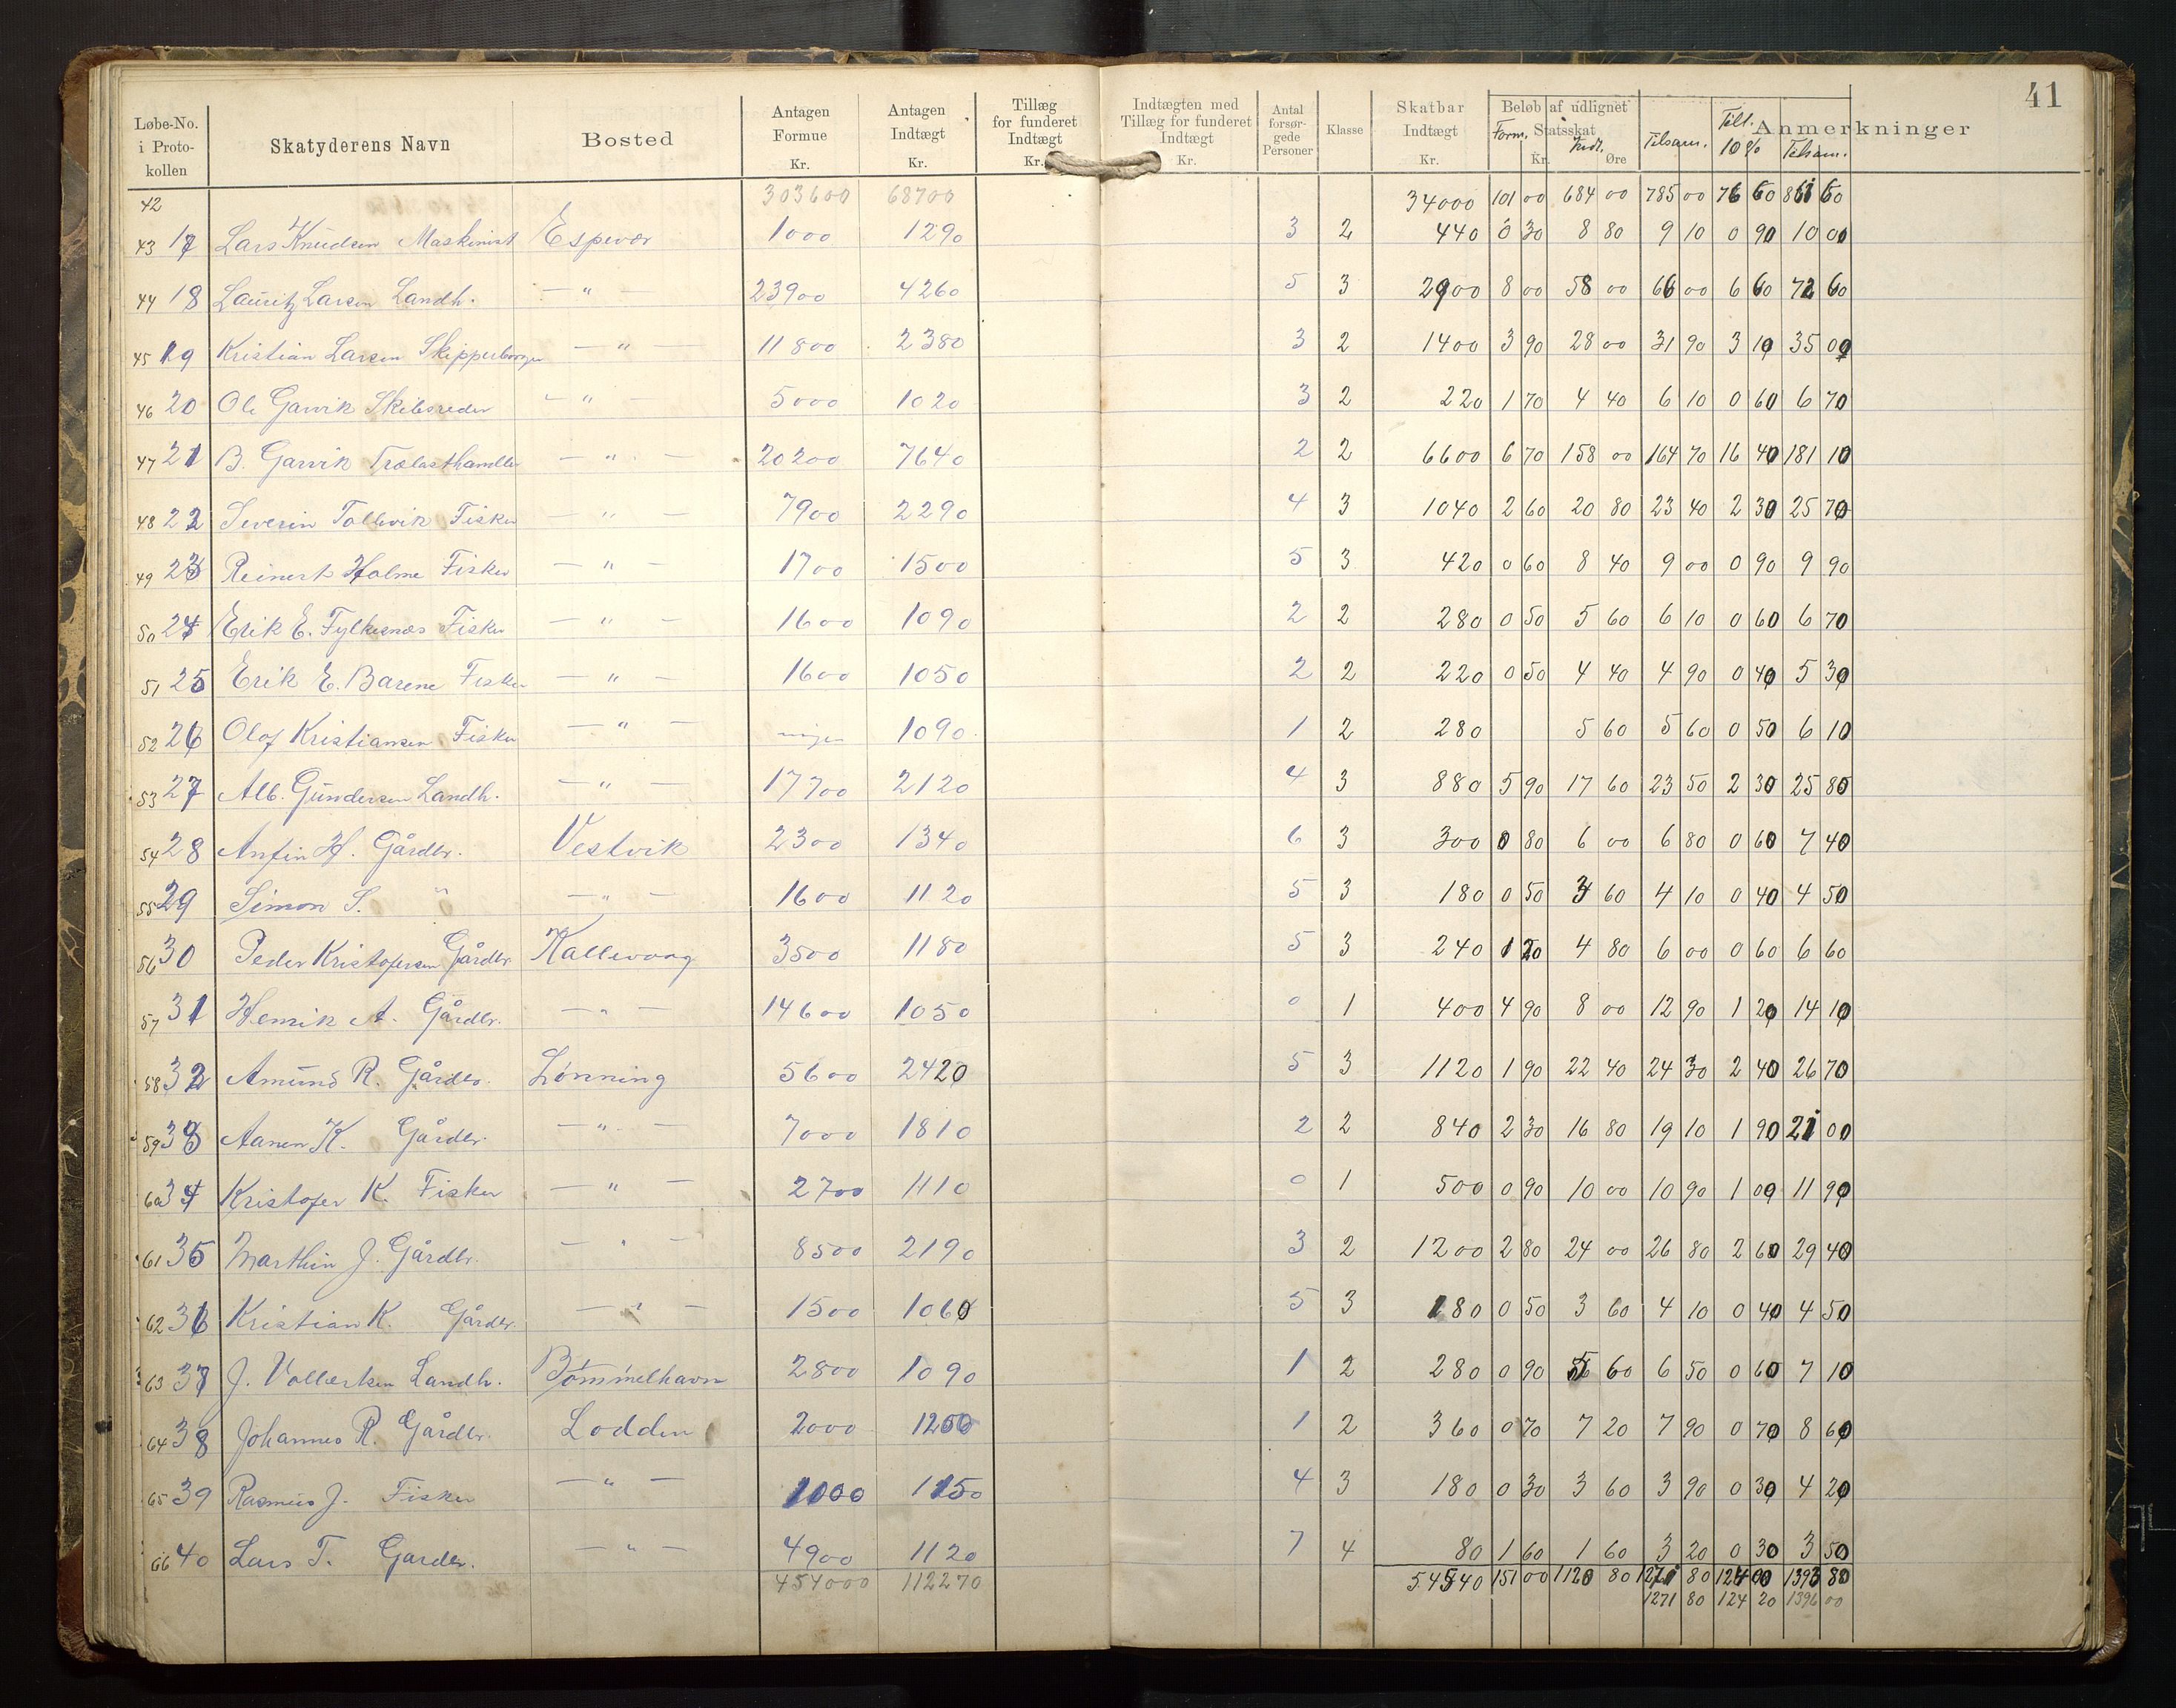 41
Løbe-No. i Proto-kollen | Skatyderens Navn | Bosted | Antagen Formue Kr. | Antagen Indtægt Kr. | Tillæg for funderet Indtægt Kr. | Indtægten med Tillæg for funderet Indtægt Kr. | Antal forsør-gede Personer | Klasse | Skatbar Indtægt Kr. | Beløb af udlignet Statsskat Kr. Øre Form. Indt. | Tilsam. | Till. 10 % | Tilsam. | Anmerkninger
42 303600 68700 34000 101 00 684 00 785 00 76 60 861 60
43 17 Lars Knudsen Maskinist Espevær 1000 1290 3 2 440 0 30 8 80 9 10 0 90 10 00
44 18 Lauritz Larsen Landh. — " — 23900 4260 5 3 2900 8 00 58 00 66 00 6 60 72 60
45 19 Kristian Larsen Skipperborger — " — 11800 2380 3 2 1400 3 90 28 00 31 90 3 10 35 00
46 20 Ole Garvik Skibsreder — " — 5000 1020 3 2 220 1 70 4 40 6 10 0 60 6 70
47 21 B. Garvik Trælasthandler — " — 20200 7640 2 2 6600 6 70 158 00 164 70 16 40 181 10
48 22 Severin Tollevik Fisker — " — 7900 2290 4 3 1040 2 60 20 80 23 40 2 30 25 70
49 23 Reinert Holme Fisker — " — 1700 1500 5 3 420 0 60 8 40 9 00 0 90 9 90
50 24 Erik E. Fylkesnæs Fisker — " — 1600 1090 2 2 280 0 50 5 60 6 10 0 60 6 70
51 25 Erik E. Barene Fisker — " — 1600 1050 2 2 220 0 50 4 40 4 90 0 40 5 30
52 26 Olaf Kristiansen Fisker — " — ingen 1090 1 2 280 5 60 5 60 0 50 6 10
53 27 Alb. Gundersen Landh. — " — 17700 2120 4 3 880 5 90 17 60 23 50 2 30 25 80
54 28 Anfin H. Gårdbr. Vestvik 2300 1340 6 3 300 0 80 6 00 6 80 0 60 7 40
55 29 Simon S. " — " — 1600 1120 5 3 180 0 50 3 60 4 10 0 40 4 50
56 30 Peder Kristofersen Gårdbr Kallevaag 3500 1180 5 3 240 1 20 4 80 6 00 0 60 6 60
57 31 Henrik A. Gårdbr. — " — 14600 1050 0 1 400 4 90 8 00 12 90 1 20 14 10
58 32 Amund R. Gårdbr. Lønning 5600 2420 5 3 1120 1 90 22 40 24 30 2 40 26 70
59 33 Aanen K. Gårdbr. — " — 7000 1810 2 2 840 2 30 16 80 19 10 1 90 21 00
60 34 Kristofer K. Fisker — " — 2700 1110 0 1 500 0 90 10 00 10 90 1 00 11 90
61 35 Marthin J. Gårdbr. — " — 8500 2190 3 2 1200 2 80 24 00 26 80 2 60 29 40
62 36 Kristian K. Gårdbr. — " — 1500 1060 5 3 180 0 50 3 60 4 10 0 40 4 50
63 37 J. Vollertsen Landh. Bømmelhavn 2800 1090 1 2 280 0 90 5 60 6 50 0 60 7 10
64 38 Johannes R. Gårdbr. Lodden 2000 1 2 360 0 70 7 20 7 90 0 70 8 60
65 39 Rasmus J. Fisker — " — 1000 1150 4 3 180 0 30 3 60 3 90 0 30 4 20
66 40 Lars T. Gardbr. — " — 4900 1120 7 4 80 1 60 1 60 3 20 0 30 3 50
454000 112270 54540 151 00 1120 80 1271 80 124 00 1393 80
1271 80 124 20 1396 00